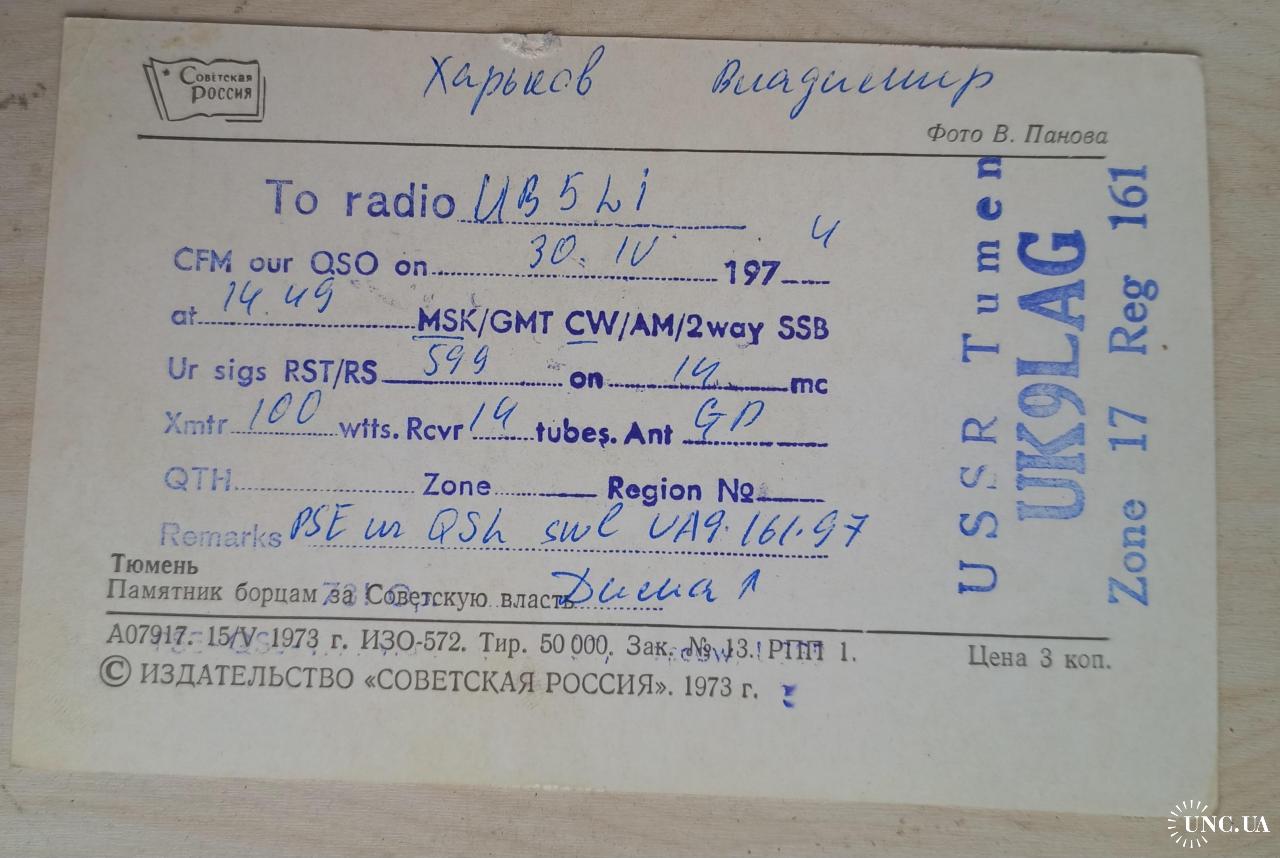 Советская
Россия
Харьков Владимир
Фото В. Панова
To radio UB5Li
CFM our QSO on 30. IV 1974
at 14.49 MSK/GMT CW/AM/2way SSB
Ur sigs RST/RS 599 on 14 mc
Xmtr 100 wtts. Rcvr 14 tubes. Ant GP
QTH Zone Region №
Remarks PSE ur QSL swl UA9·161·97
Тюмень
Памятник борцам за Советскую власть
Дима
А07917. 15/V 1973 г. ИЗО-572. Тир. 50 000. Зак. № 13. РПП 1.
Цена 3 коп.
© ИЗДАТЕЛЬСТВО «СОВЕТСКАЯ РОССИЯ». 1973 г.
USSR Tumen
UK9LAG
Zone 17 Reg 161
UNC.UA